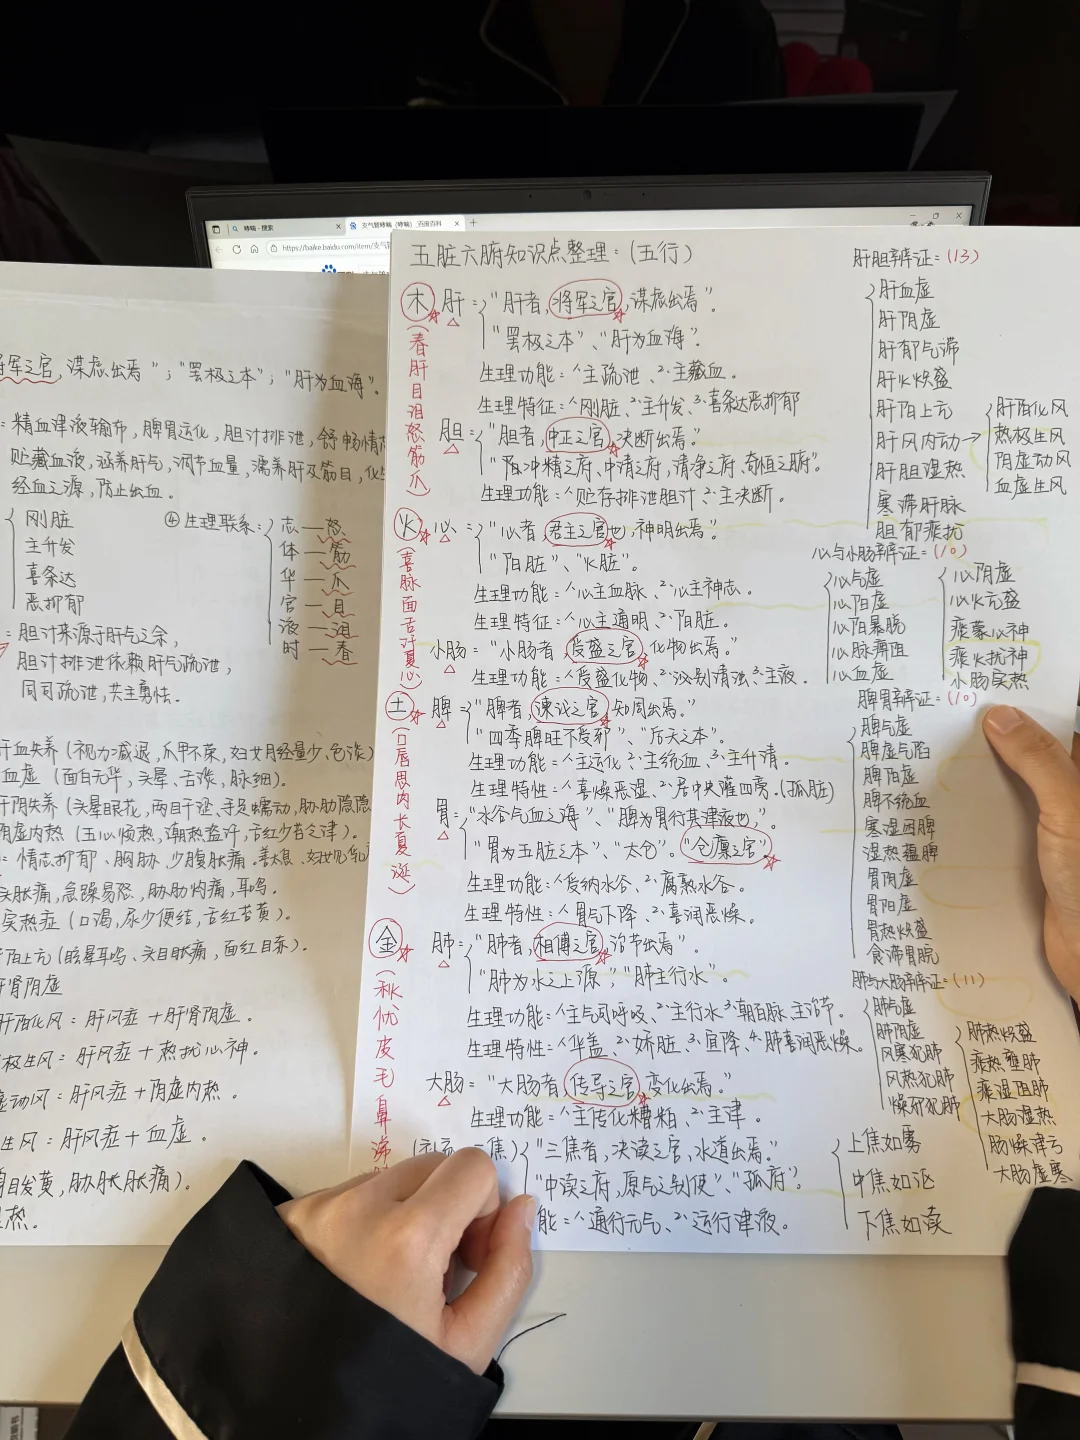 哮喘 - 搜索
支气管哮喘（哮喘）_百度百科
https://baike.baidu.com/item/支气管
将军之官，谋虑出焉"；"罢极之本"；"肝为血海"。
：精血津液输布，脾胃运化，胆汁排泄，舒畅情
贮藏血液，涵养肝气，调节血量，濡养肝及筋目，化生
经血之源，防止出血。
刚脏
主升发
喜条达
恶抑郁
④生理联系：
志—怒
体—筋
华—爪
窍—目
液—泪
时—春
：胆汁来源于肝气之余，
胆汁排泄依赖肝气疏泄，
同司疏泄，共主勇怯。
肝血失养（视力减退，爪甲不荣，妇女月经量少、色淡）
血虚（面白无华，头晕、舌淡，脉细）。
肝阴失养（头晕眼花，两目干涩、手足蠕动，胁肋隐隐
阴虚内热（五心烦热，潮热盗汗，舌红少苔乏津）。
：情志抑郁、胸胁、少腹胀痛。善太息、
头胀痛，急躁易怒，胁肋灼痛，耳鸣。
实热症（口渴，尿少便结，舌红苔黄）。
阳上亢（眩晕耳鸣、头目胀痛，面红目赤）。
肝肾阴虚
肝阳化风：肝风症＋肝肾阴虚。
极生风：肝风症＋热扰心神。
虚动风：肝风症＋阴虚内热。
生风：肝风症＋血虚。
目发黄，胁胀胀痛）。
热。
五脏六腑知识点整理：（五行）
木
（春肝目泪怒筋爪）
肝："肝者，将军之官，谋虑出焉"。
"罢极之本"、"肝为血海"。
生理功能：1.主疏泄、2.主藏血。
生理特征：1.刚脏、2.主升发、3.喜条达恶抑郁
胆："胆者，中正之官，决断出焉。"
精之府、中清之府，清净之府、奇恒之腑"。
生理功能：1.贮存排泄胆汁 2.主决断。
火
（喜脉面舌汗夏心）
心："心者，君主之官也，神明出焉。"
"阳脏"、"火脏"。
生理功能：1.心主血脉、2.心主神志。
生理特征：1.心主通明、2.阳脏。
小肠="小肠者，受盛之官，化物出焉。"
生理功能：1.受盛化物、2.泌别清浊、3.主液。
土
（口唇思肉长夏涎）
脾："脾者，谏议之官，知周出焉。"
"四季脾旺不受邪"、"后天之本"。
生理功能：1.主运化 2.主统血、3.主升清
生理特性：1.喜燥恶湿、2.居中央灌四旁。（孤脏）
胃："水谷气血之海"、"脾为胃行其津液也"。
"胃为五脏之本"、"太仓"。"仓廪之官"
生理功能：1.受纳水谷、2.腐熟水谷。
生理特性：1.胃气下降、2.喜润恶燥。
金
（秋忧皮毛鼻涕
肺："肺者，相傅之官，治节出焉"。
"肺为水之上源"；"肺主行水"
生理功能：1.主气司呼吸、2.主行水 3.朝百脉、主治节。
生理特性：1.华盖、2.娇脏、3.宣降、4.肺喜润恶燥。
大肠="大肠者，传导之官，变化出焉。"
生理功能：1.主传化糟粕、2.主津。
焦）"三焦者，决渎之官，水道出焉。"
"中渎之府，原气之别使"、"孤府"。
能：1.通行元气、2.运行津液。
上焦如雾
中焦如沤
下焦如渎
肝胆辨证：（13）
肝血虚
肝阴虚
肝郁气滞
肝火炽盛
肝阳上亢
肝风内动→
肝胆湿热
寒滞肝脉
胆郁痰扰
肝阳化风
热极生风
阴虚动风
血虚生风
心与小肠辨证：（10）
心气虚
心阳虚
心阳暴脱
心脉痹阻
心血虚
心阴虚
心火亢盛
痰蒙心神
痰火扰神
小肠实热
脾胃辨证：（10）
脾气虚
脾虚气陷
脾阳虚
脾不统血
寒湿困脾
湿热蕴脾
胃阴虚
胃阳虚
胃热炽盛
食滞胃脘
肺与大肠辨证：（11）
肺气虚
肺阴虚
风寒犯肺
风热犯肺
燥邪犯肺
肺热炽盛
痰热壅肺
痰湿阻肺
大肠湿热
肠燥津亏
大肠虚寒